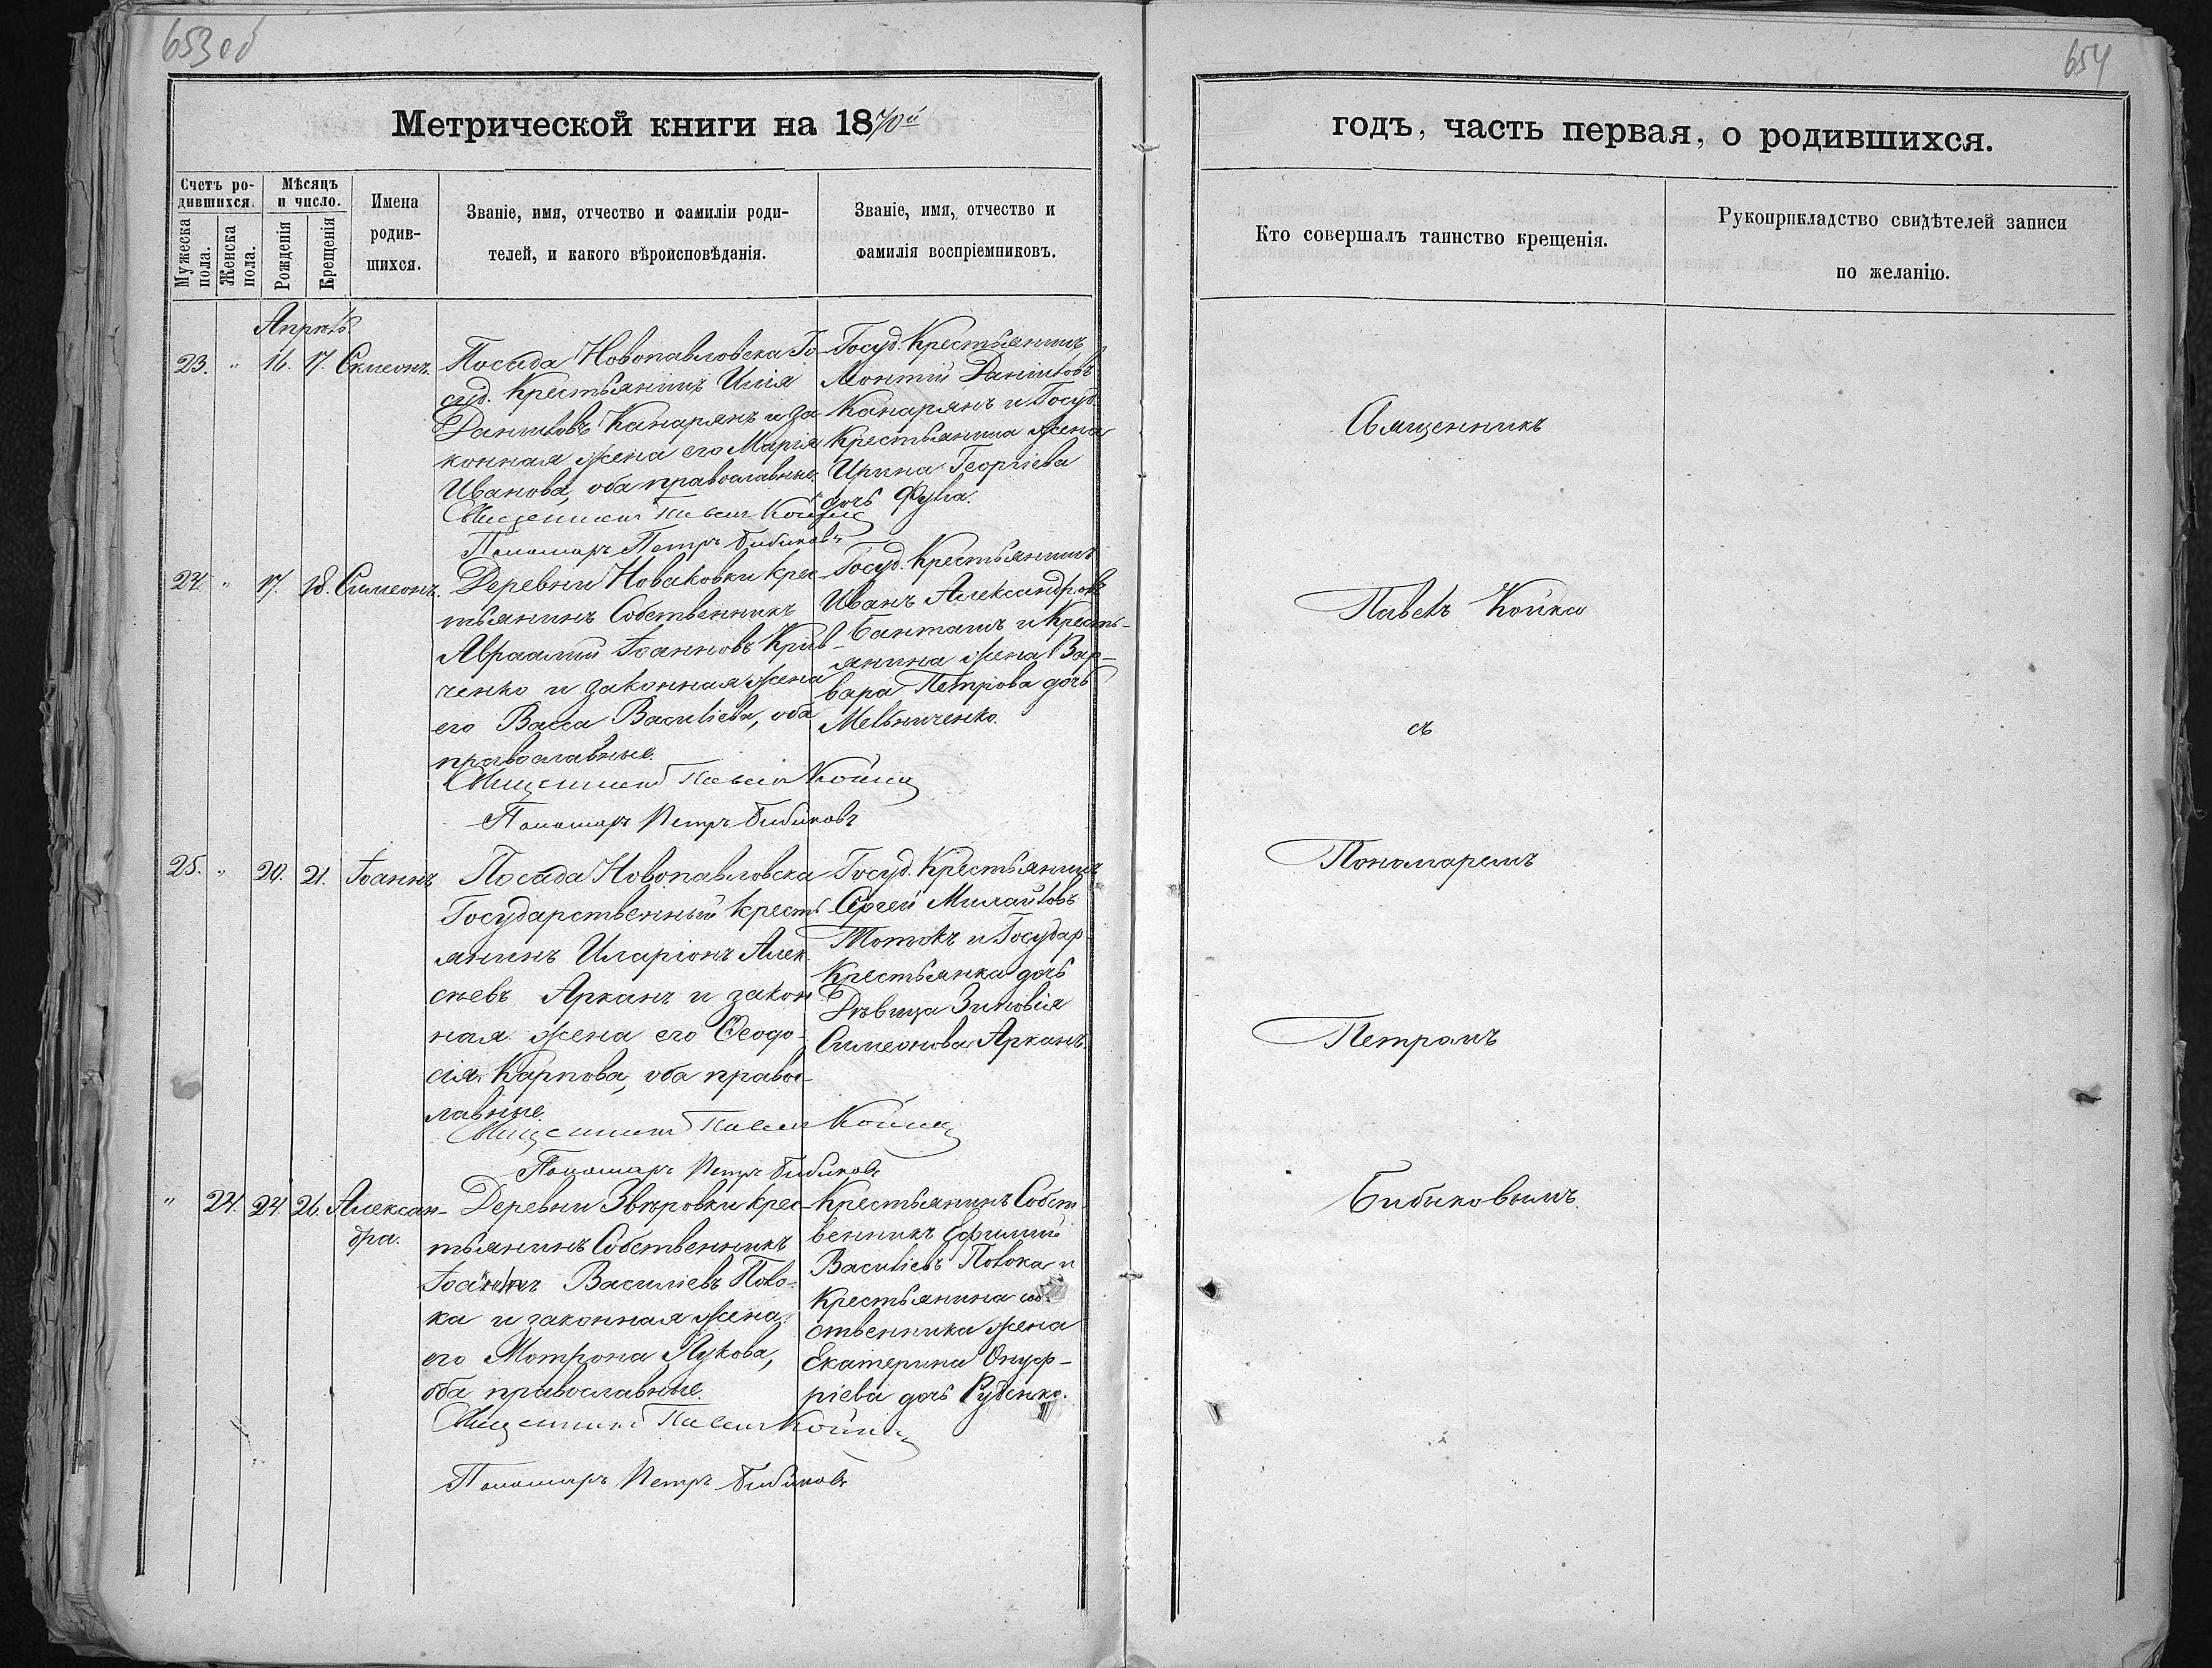 653 об
654
Метрической книги на 1870й
годъ, часть первая, о родившихся.
Счетъ ро-
дившихся.
Мужеска пола.
Женска пола.
Мѣсяцъ
и число.
Рожденія
Крещенія
Имена
родив-
шихся.
Званіе, имя, отчество и фамиліи роди-
телей, и какого вѣроисповѣданія.
Званіе, имя, отчество и
фамилія воспріемниковъ.
Кто совершалъ таинство крещенія.
Рукоприкладство свидѣтелей записи
по желанію.
Апрѣль.
23. " 16. 17. Симеонъ.
Посада Новопавловска Го-
суд. Крестьянинъ Илія
Даниловъ Канарянъ и за
конная жена его Марія
Иванова, оба православные.
Священникъ Павелъ Койка
Пономарь Петръ Бибиковъ
Госуд. Крестьянинъ
Леонтій Даниловъ
Канарянъ и Госуд.
Крестьянина жена
Ирина Георгіева
дочь
24. " 17. 18. Симеонъ.
Деревни Новаковки Крес-
тьянинъ Собственникъ
Авраамій Іоанновъ Крив-
ченко и законная жена
его Васса Василіева, оба
православные.
Священникъ Павелъ Койка
Пономарь Петръ Бибиковъ
Госуд. Крестьянинъ
Иванъ Александровъ
Банташъ и Кресть-
янина жена Вар-
вара Петрова дочь
Мельниченко.
25. " 20. 21. Іоаннъ
Посада Новопавловска
Государственный Кресть
янинъ Иларіонъ Алек
сѣевъ Арканъ и закон
ная жена его Ѳеодо-
сія Карпова, оба правос-
лавные.
Священникъ Павелъ Койка
Пономарь Петръ Бибиковъ
Госуд. Крестьянинъ
Сергей Михайловъ
Тотокъ и Государ-
Крестьянка дочь
Дѣвица Зиновія
Симеонова Арканъ.
" 24. 24. 26. Алексан-
дра.
Деревни Звѣровки Крес-
тьянинъ Собственникъ
Іоаннъ Василіевъ Поло-
ка и законная жена
его Мотрона Лукова,
оба православные.
Священникъ Павелъ Койка
Пономарь Петръ Бибиковъ
Крестьянинъ Собст
венникъ Ефимій
Василіевъ Полока и
Крестьянина соб-
ственника жена
Екатерина Онуф-
ріева дочь Руденко.
Священникъ
Павелъ Койка
съ
Пономаремъ
Петромъ
Бибиковымъ.